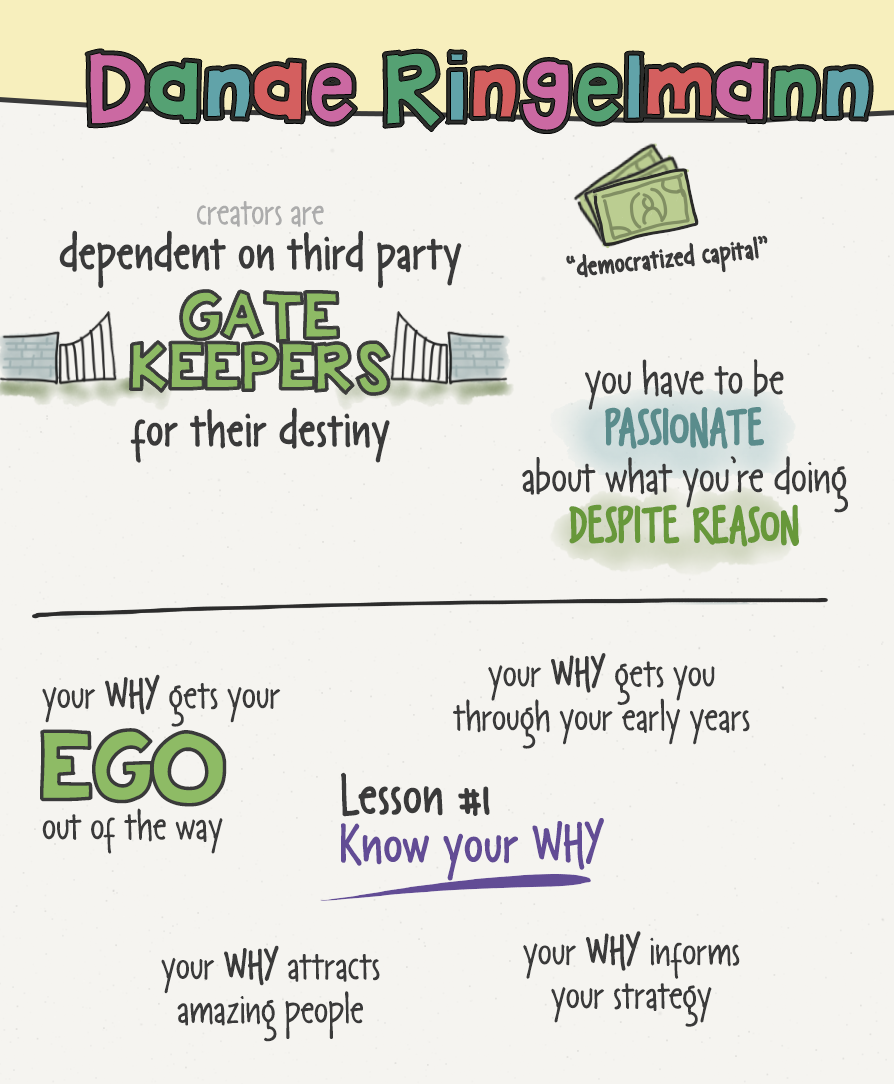 Danae Ringelmann
creators are
dependent on third party
GATE
KEEPERS
for their destiny
"democratized capital"
you have to be
PASSIONATE
about what you're doing
DESPITE REASON
your WHY gets your
EGO
out of the way
your WHY gets you
through your early years
Lesson #1
Know your WHY
your WHY attracts
amazing people
your WHY informs
your strategy